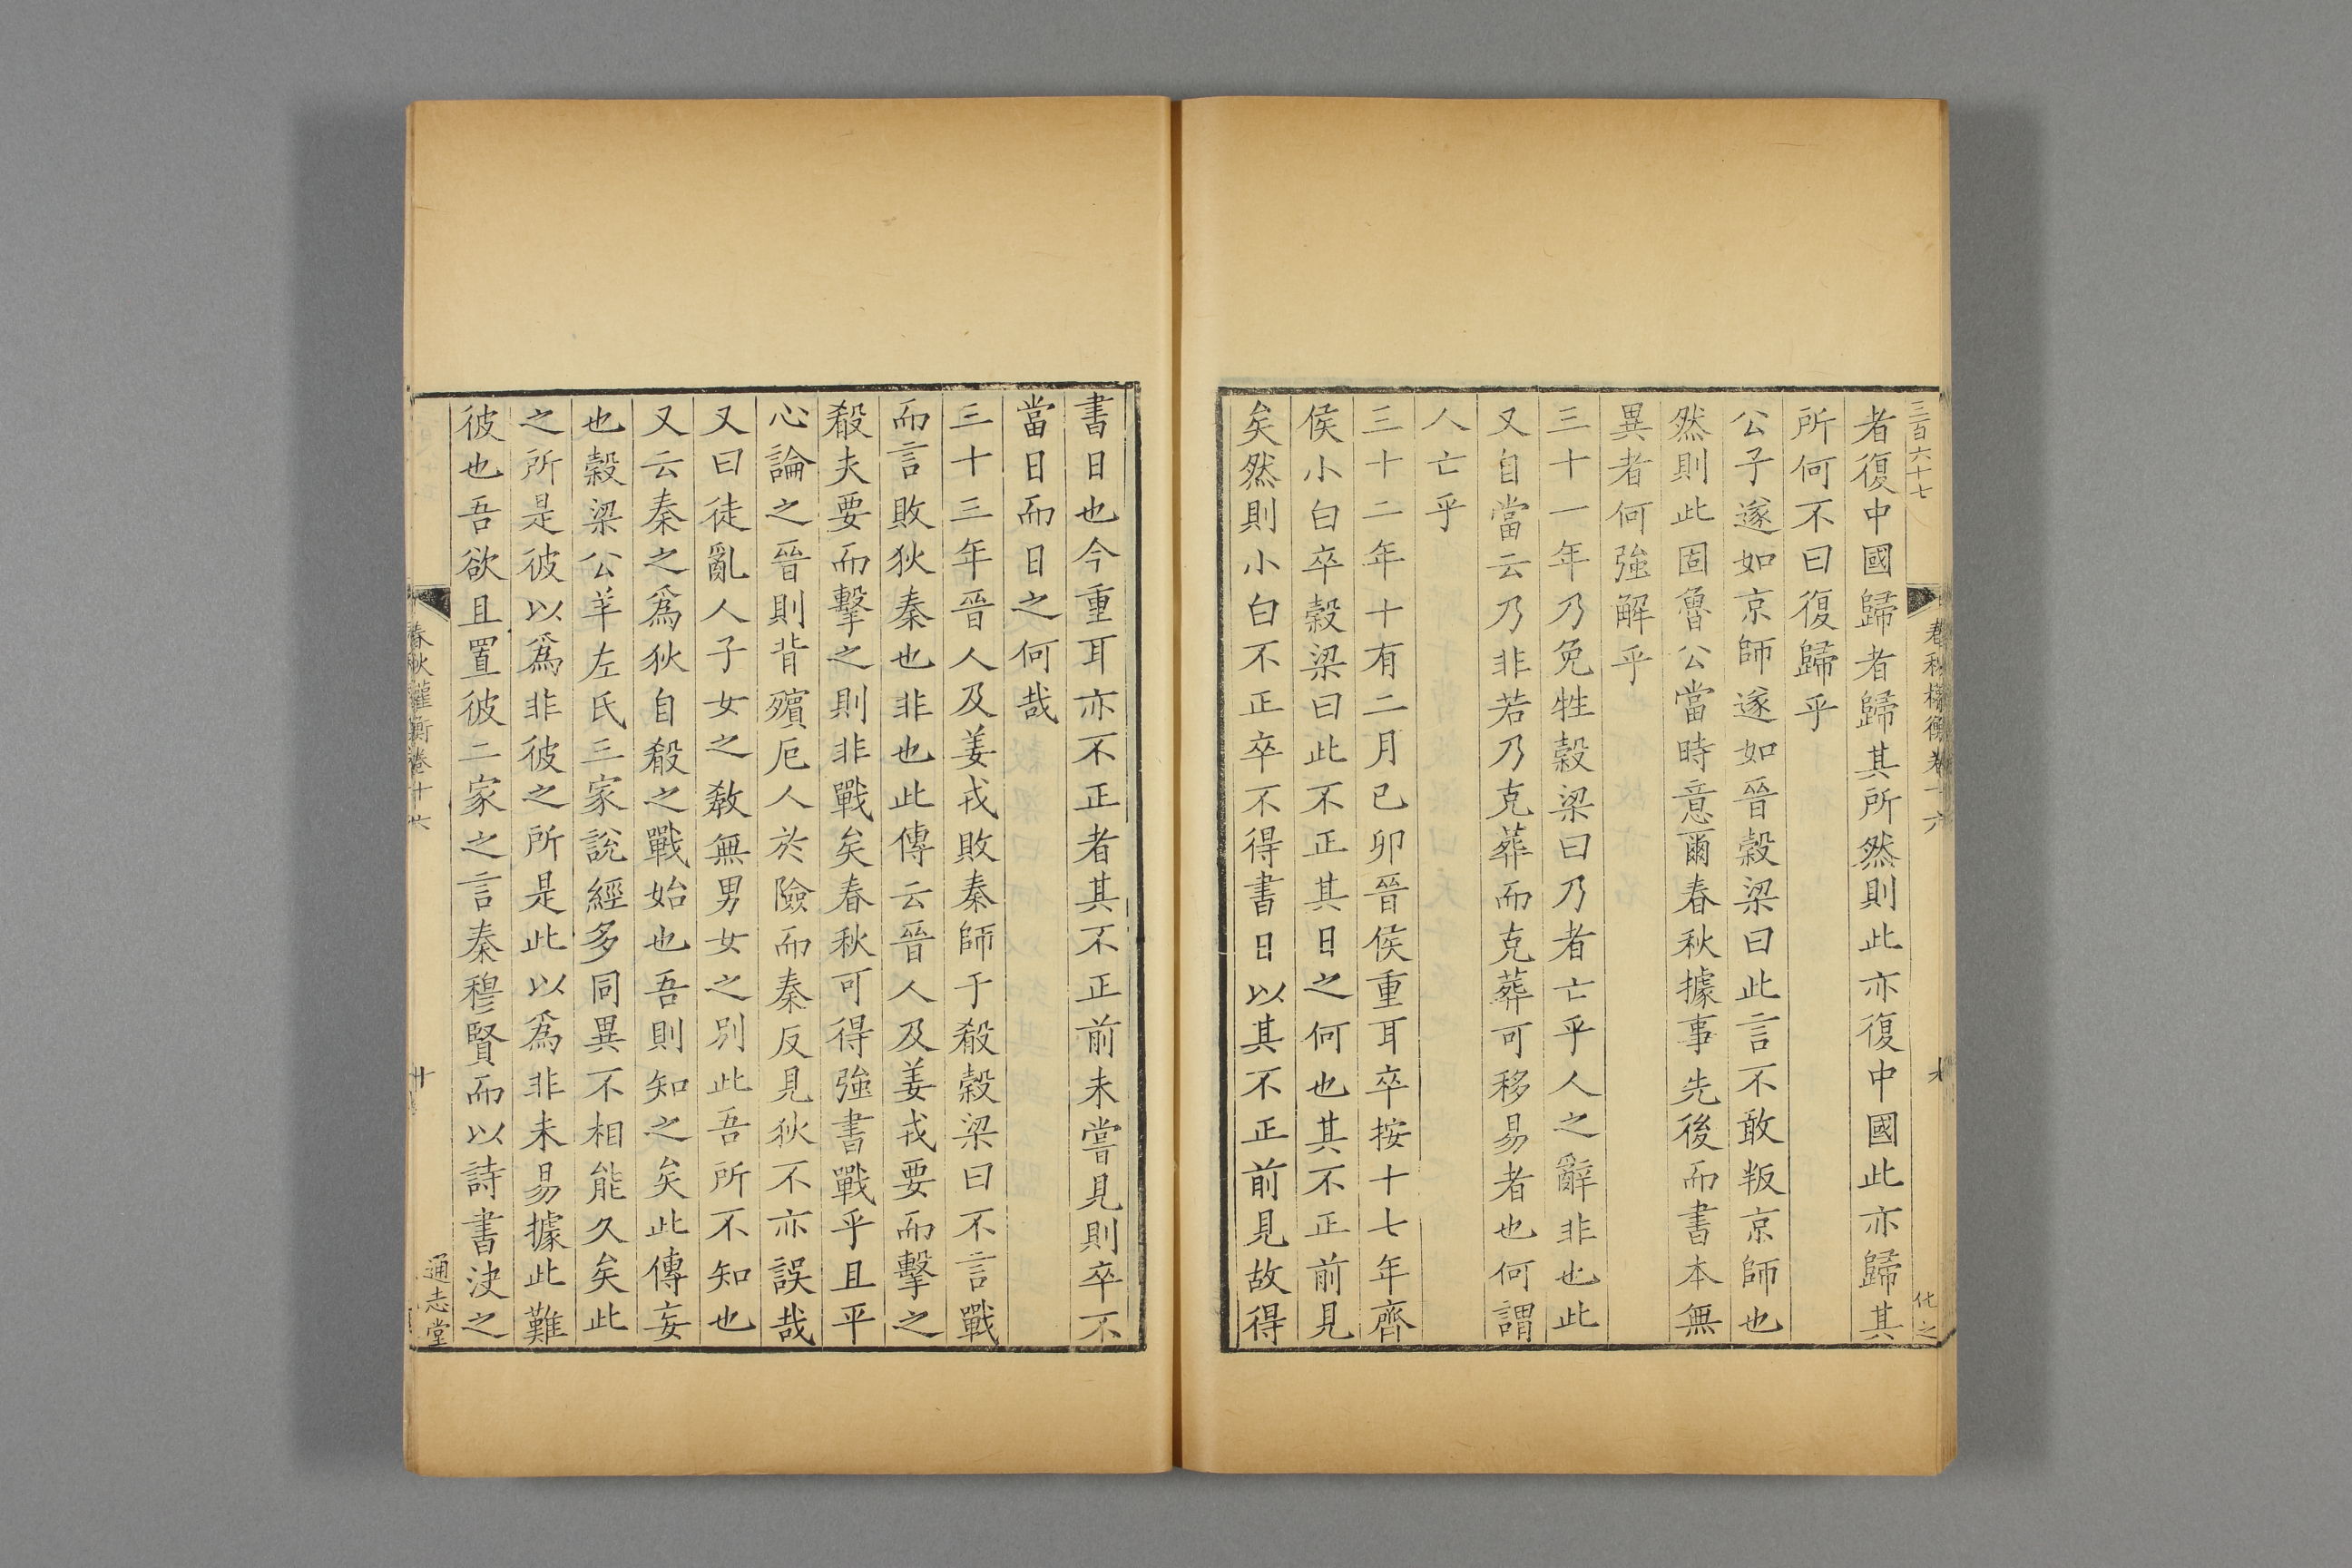 三百六十七
春秋權衡卷十六
化之
者復中國歸者歸其所然則此亦復中國此亦歸其
所何不曰復歸乎
公子遂如京師遂如晉穀梁曰此言不敢叛京師也
然則此固魯公當時意爾春秋據事先後而書本無
異者何強解乎
三十一年乃免牲穀梁曰乃者亡乎人之辭非也此
又自當云乃非若乃克葬而克葬可移易者也何謂
人亡乎
三十二年十有二月已卯晉侯重耳卒按十七年齊
侯小白卒穀梁曰此不正其日之何也其不正前見
矣然則小白不正卒不得書日以其不正前見故得
書日也今重耳亦不正者其不正前未嘗見則卒不
當日而日之何哉
三十三年晉人及姜戎敗秦師于殽穀梁曰不言戰
而言敗狄秦也非也此傳云晉人及姜戎要而擊之
殽夫要而擊之則非戰矣春秋可得強書戰乎且平
心論之晉則背殯厄人於險而秦反見狄不亦誤哉
又曰徒亂人子女之敎無男女之別此吾所不知也
又云秦之爲狄自殽之戰始也吾則知之矣此傳妄
也穀梁公羊左氏三家說經多同異不相能久矣此
之所是彼以爲非彼之所是此以爲非未易據此難
彼也吾欲且置彼二家之言秦穆賢而以詩書決之
春秋權衡卷十六
十
通志堂